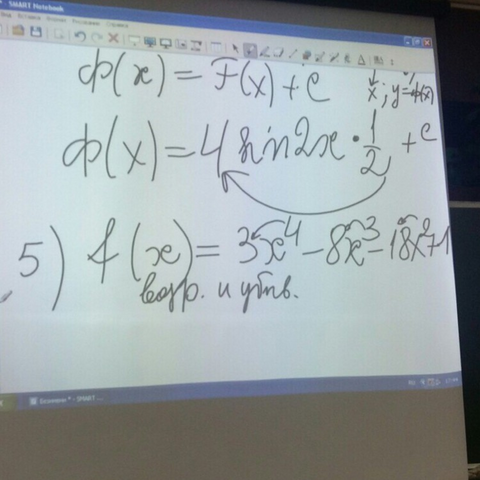 SMART Notebook
Ф(x) = F(x) + C
x; y=Ф(x)
Ф(x) = 4 sin2x · 1/2 + C
5) f(x) = 3x⁴ − 8x³ − 18x²+1
возр. и убыв.